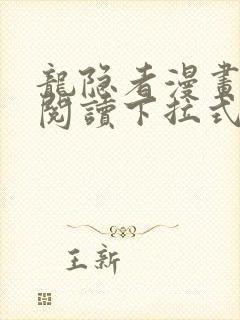 龍隐者漫畫
閱讀下拉式
王新